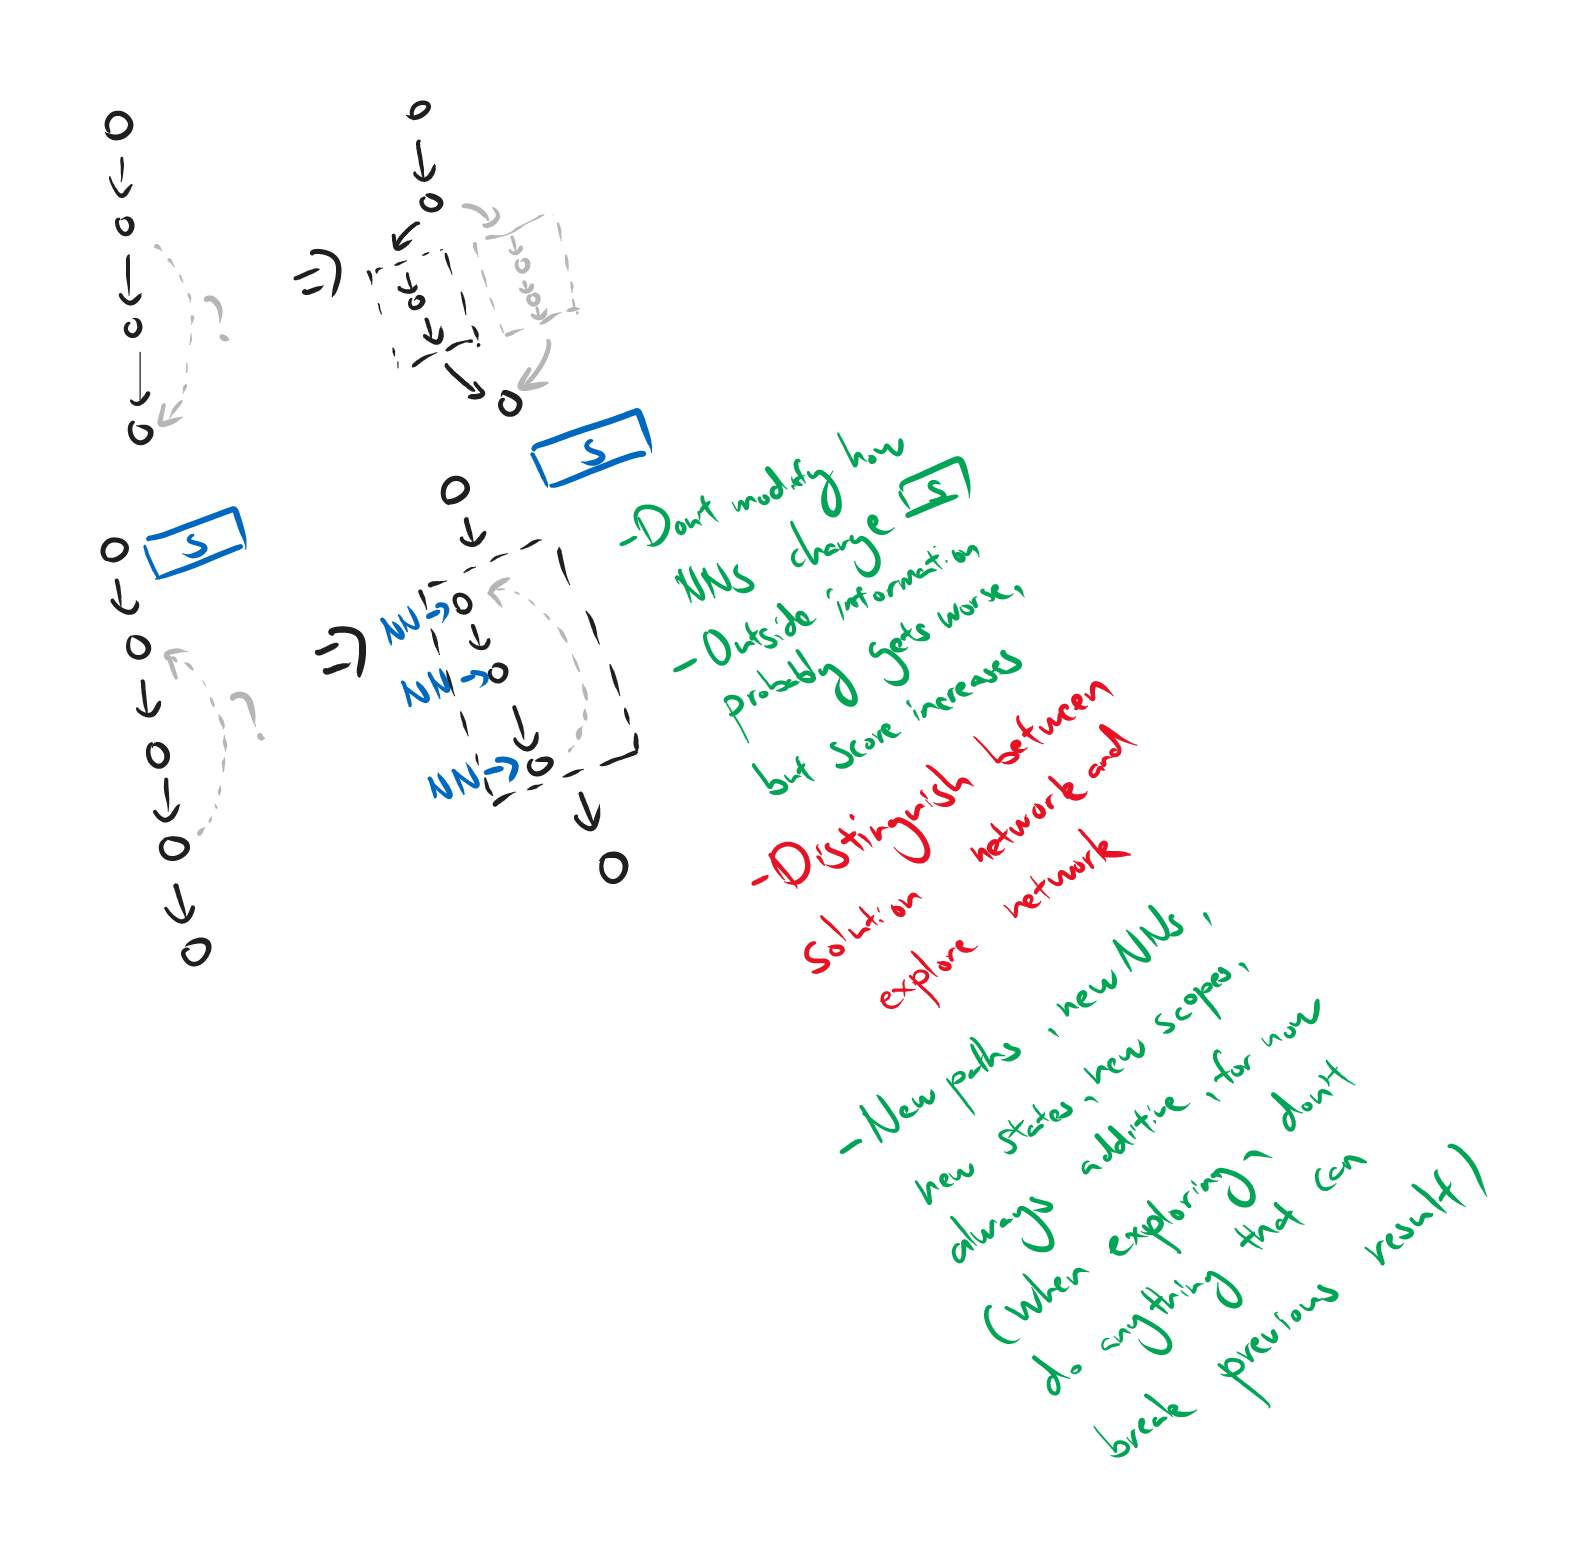 ?
=>
S
-Don't modify how
NNs change S
-Outside information
probably gets worse,
but score increases
S
?
=>
NN→
NN→
NN→
-Distinguish between
solution network and
explore network
-New paths, new NNs,
new states, new scopes,
always additive, for now
(when exploring, don't
do anything that can
break previous result)